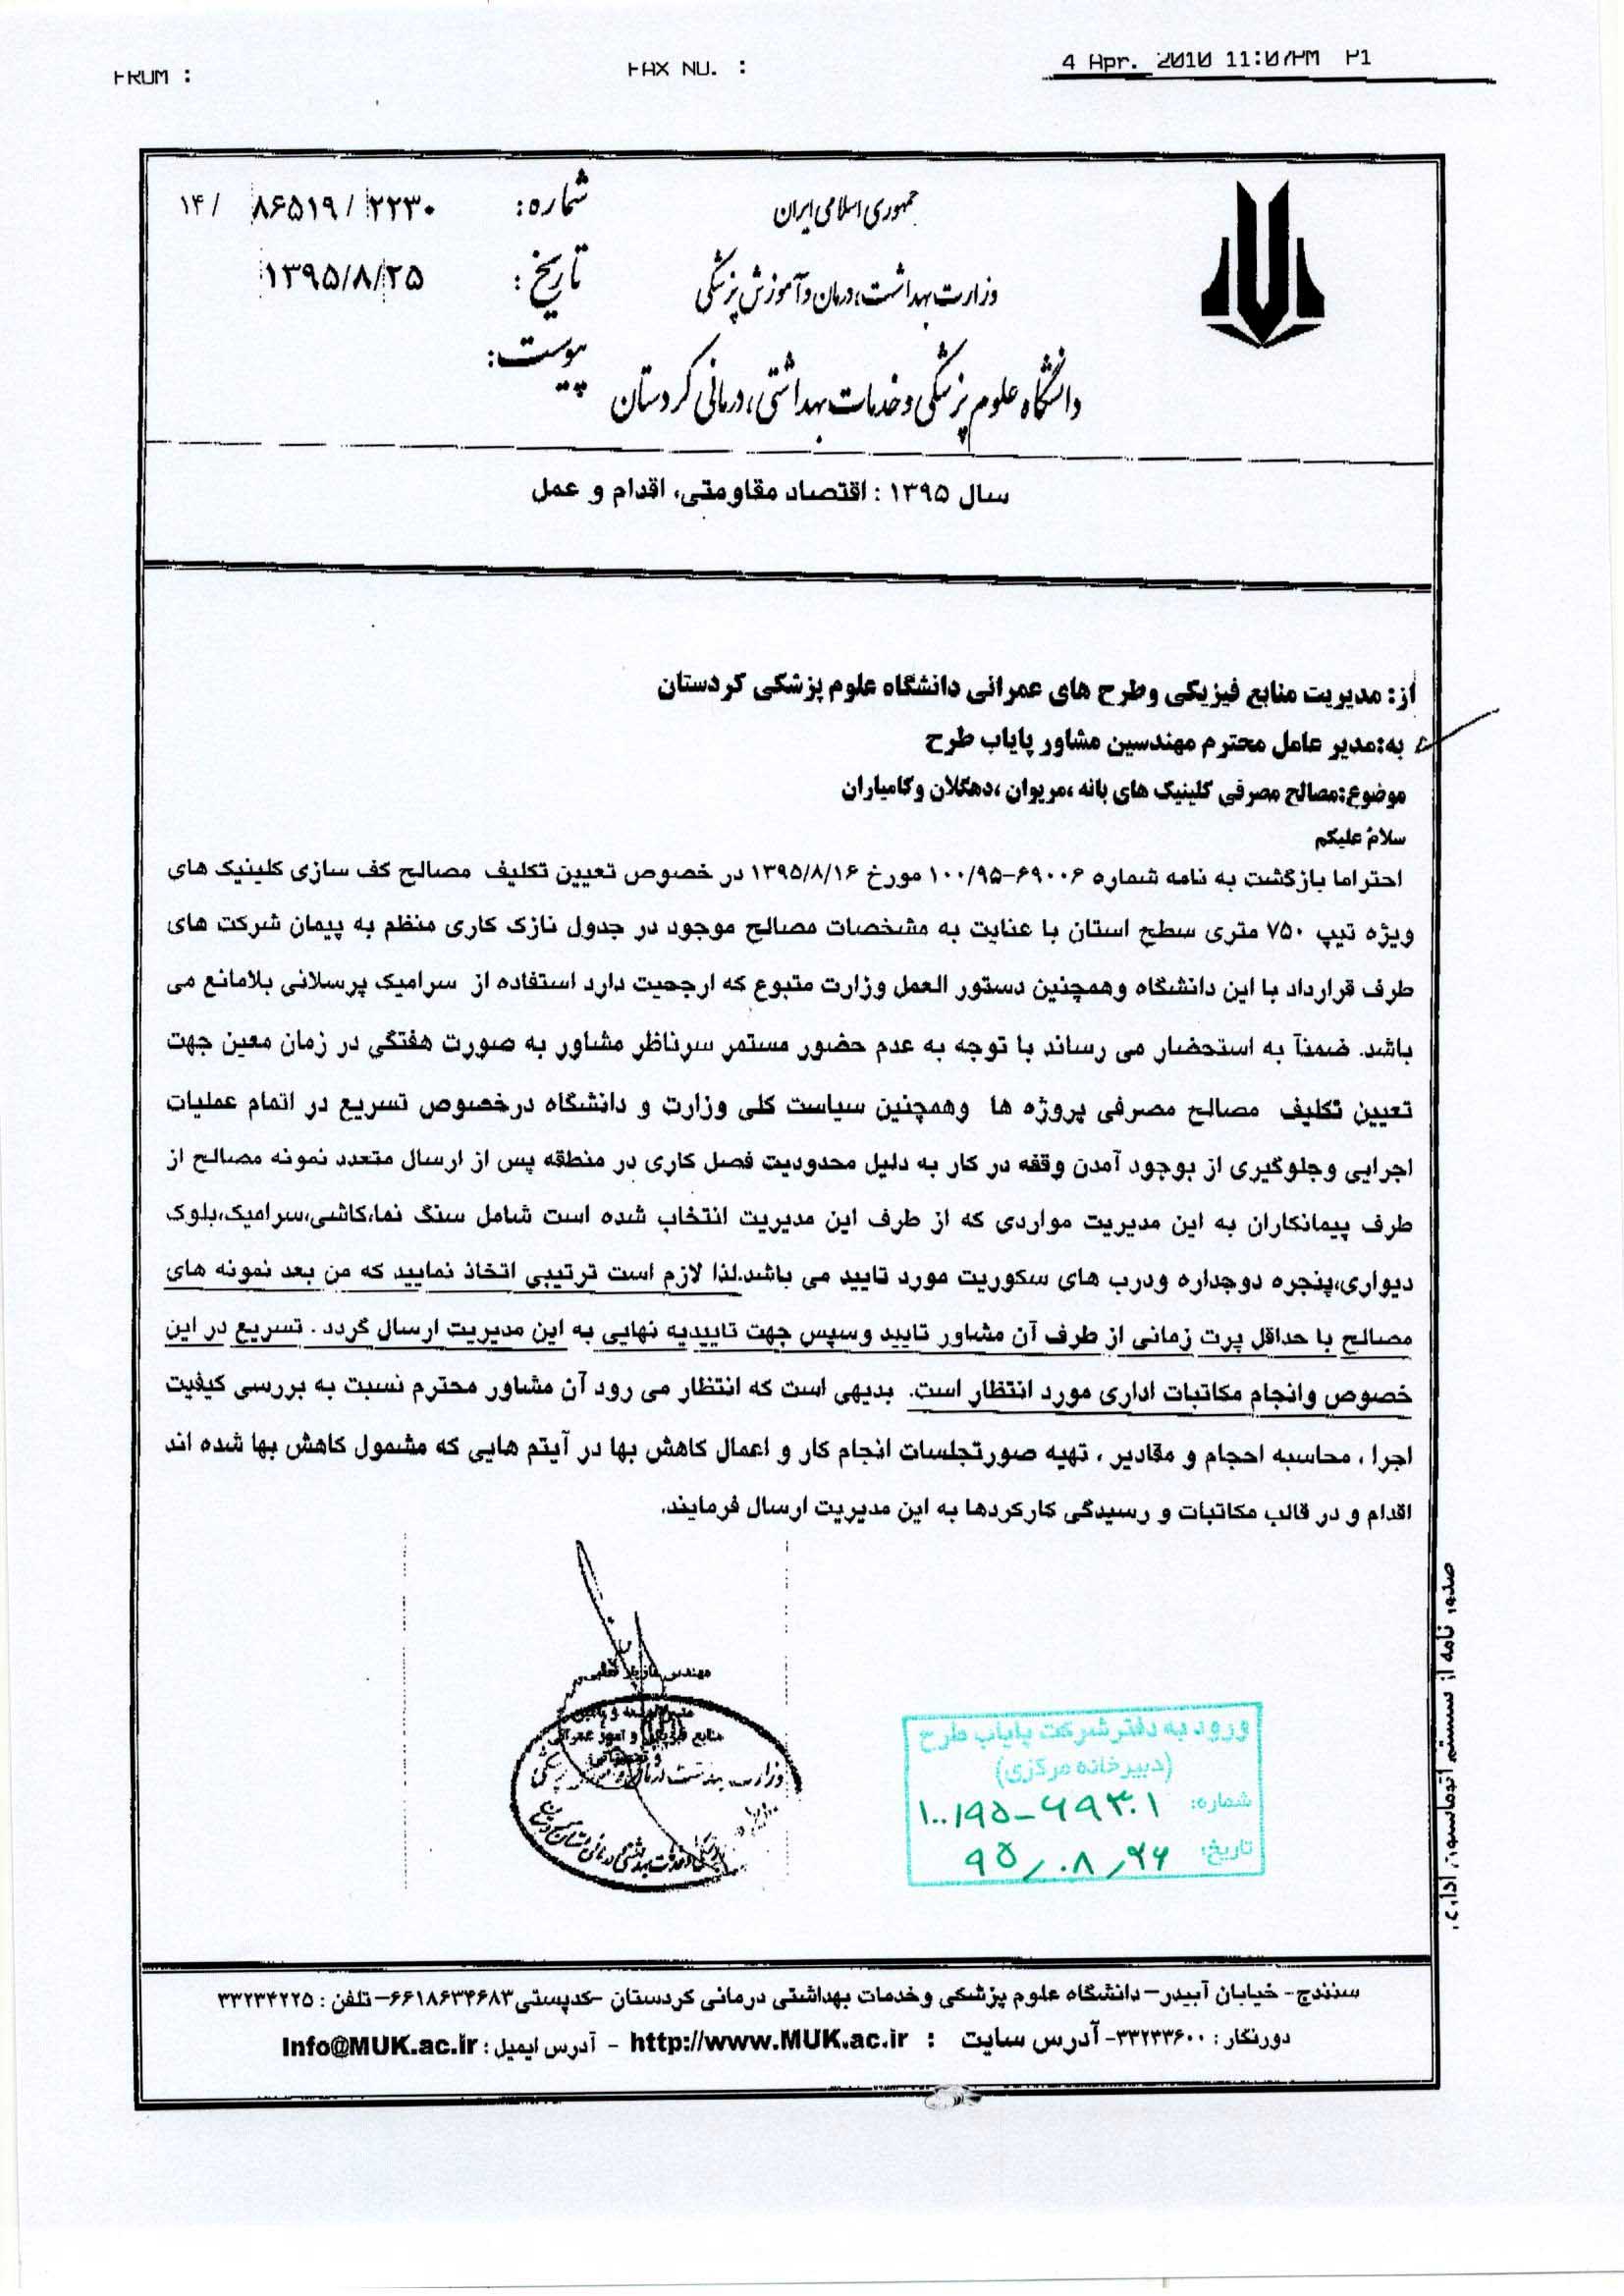 FROM :
FAX NO. :
4 Apr. 2010 11:07PM P1
جمهوری اسلامی ایران
وزارت بهداشت، درمان و آموزش پزشکی
دانشگاه علوم پزشکی و خدمات بهداشتی، درمانی کردستان
شماره: ۱۴/ ۸۶۵۱۹/ ۲۲۳۰
تاریخ: ۱۳۹۵/۸/۲۵
پیوست:
سال ۱۳۹۵ : اقتصاد مقاومتی، اقدام و عمل
از: مدیریت منابع فیزیکی وطرح های عمرانی دانشگاه علوم پزشکی کردستان
به:مدیر عامل محترم مهندسین مشاور پایاب طرح
موضوع:مصالح مصرفی کلینیک های بانه ،مریوان ،دهگلان وکامیاران
سلامٌ علیکم
احتراما بازگشت به نامه شماره ۶۹۰۰۶-۱۰۰/۹۵ مورخ ۱۳۹۵/۸/۱۶ در خصوص تعیین تکلیف مصالح کف سازی کلینیک های
ویژه تیپ ۷۵۰ متری سطح استان با عنایت به مشخصات مصالح موجود در جدول نازک کاری منظم به پیمان شرکت های
طرف قرارداد با این دانشگاه وهمچنین دستور العمل وزارت متبوع که ارجحیت دارد استفاده از سرامیک پرسلانی بلامانع می
باشد. ضمناً به استحضار می رساند با توجه به عدم حضور مستمر سرناظر مشاور به صورت هفتگی در زمان معین جهت
تعیین تکلیف مصالح مصرفی پروژه ها وهمچنین سیاست کلی وزارت و دانشگاه درخصوص تسریع در اتمام عملیات
اجرایی وجلوگیری از بوجود آمدن وقفه در کار به دلیل محدودیت فصل کاری در منطقه پس از ارسال متعدد نمونه مصالح از
طرف پیمانکاران به این مدیریت مواردی که از طرف این مدیریت انتخاب شده است شامل سنگ نما،کاشی،سرامیک،بلوک
دیواری،پنجره دوجداره ودرب های سکوریت مورد تایید می باشد.لذا لازم است ترتیبی اتخاذ نمایید که من بعد نمونه های
مصالح با حداقل پرت زمانی از طرف آن مشاور تایید وسپس جهت تاییدیه نهایی به این مدیریت ارسال گردد . تسریع در این
خصوص وانجام مکاتبات اداری مورد انتظار است. بدیهی است که انتظار می رود آن مشاور محترم نسبت به بررسی کیفیت
اجرا ، محاسبه احجام و مقادیر ، تهیه صورتجلسات انجام کار و اعمال کاهش بها در آیتم هایی که مشمول کاهش بها شده اند
اقدام و در قالب مکاتبات و رسیدگی کارکردها به این مدیریت ارسال فرمایند.
مهندس
منابع فیزیکی و امور عمرانی
ورود به دفتر شرکت پایاب طرح
(دبیرخانه مرکزی)
شماره: ۱۰۰/۹۵-۶۹۳۰۱
تاریخ: ۹۵/۰۸/۲۶
صدور نامه از سیستم اتوماسیون اداری
سنندج- خیابان آبیدر- دانشگاه علوم پزشکی وخدمات بهداشتی درمانی کردستان -کدپستی۶۶۱۸۶۳۴۶۸۳-تلفن : ۳۳۲۳۴۲۲۵
دورنگار : ۳۳۲۳۳۶۰۰- آدرس سایت : http://www.MUK.ac.ir - آدرس ایمیل : Info@MUK.ac.ir